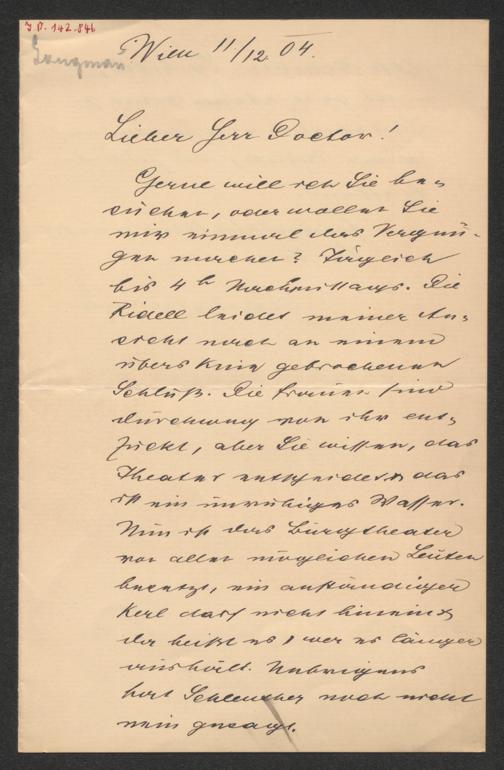 I.N. 142.846
Langmann
Wien 11/12 04.
Lieber Herr Doctor!
Gerne will ich Sie be=
suchen, oder wollen Sie
mir einmal das Vergnü-
gen machen? Täglich
bis 4h Nachmittags. Die
leidet meiner An=
sicht nach an einem
übers Knie gebrochenen
Schluß. Die Frauen sind
durchweg von ihr ent=
zückt, aber Sie wissen, das
Theater entscheidet & das
ist ein unruhiges Wasser.
Nun ist das Burgtheater
von allen möglichen Leuten
besetzt, ein anständiger
Kerl darf nicht hinein &
da heißt es, wer es länger
aushält. Uebrigens
hat Schlenther noch nicht
nein gesagt.